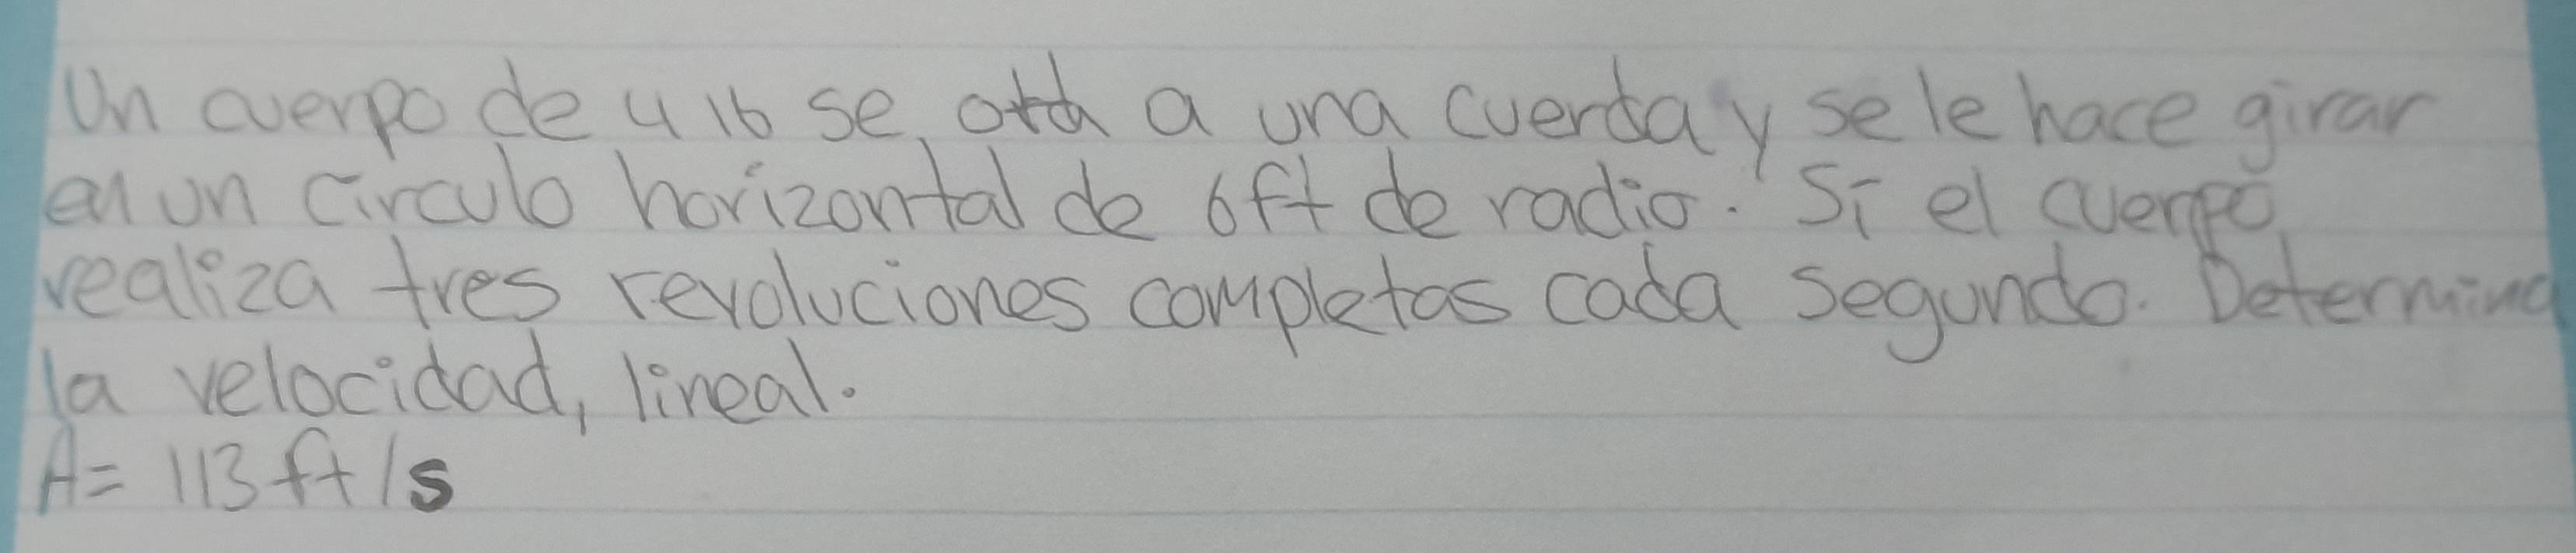 Un cuerpo de 4 lb se ata a una cuerda y se le hace girar
en un circulo horizontal de 6ft de radio. Si el cuerpo
realiza tres revoluciones completas cada segundo. Determina
la velocidad, lineal.
A= 113 ft/s